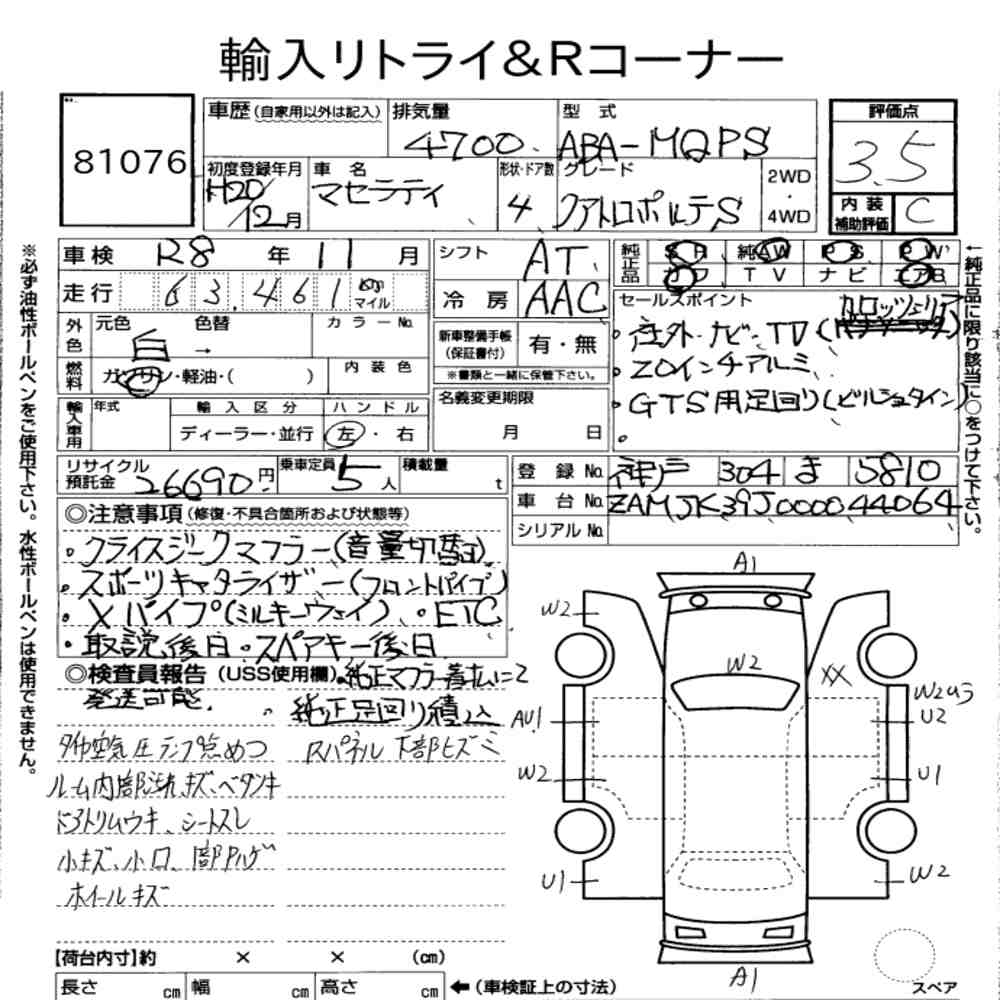 輸入リトライ&Rコーナー
81076
車歴(自家用以外は記入)
排気量
4700
型 式
ABA-MQPS
評価点
3.5
内装補助評価
C
初度登録年月
H20/12月
車 名
マセラティ
形状・ドア数
4
グレード
クアトロポルテS
2WD・4WD
車検 R8 年 11 月
走行 63,461 km マイル
シフト
AT
冷 房
AAC
純正品
SR 純AW PS PW
カワ TV ナビ エアB
外色
元色
白
色替
→
カラーNo.
燃料
ガソリン・軽油・( )
内 装 色
新車整備手帳(保証書付)
有・無
※書類と一緒に保管下さい。
セールスポイント
カロッツェリア
・社外・ナビ・TV(
・20インチアルミ
・GTS用足回り(ビルシュタイン)
輸入車用
年式
輸 入 区 分
ディーラー・並行
ハ ン ド ル
左・右
名義変更期限
月 日
リサイクル預託金
26690円
乗車定員
5人
積載量
t
登 録 No.
神戸 304 ま 5810
車 台 No.
ZAMJK39J000044064
シリアル No.
◎注意事項(修復・不具合箇所および状態等)
・クライスジークマフラー(音量切替可)
・スポーツキャタライザー(フロントパイプ)
・Xパイプ(ミルキーウェイ)、・ETC
・取説後日・スペアキー後日
◎検査員報告(USS使用欄)・純正マフラー着払いにて
発送可能。
・純正足回り積込
タイヤ空気圧ランプ点めつ
Rパネル下部ヒズミ
ルーム内部汚れ、キズ、ベタツキ
ドアトリムウキ、シートスレ
小キズ、小凹、
ホイールキズ
A1
W2
W2
XX
AU1
W2
U1
W2
U2
U1
W2
A1
スペア
【荷台内寸】約 × × (cm)
長さ cm 幅 cm 高さ cm ←(車検証上の寸法)
※必ず油性ボールペンをご使用下さい。水性ボールペンは使用できません。
←純正品に限り該当に○をつけて下さい。